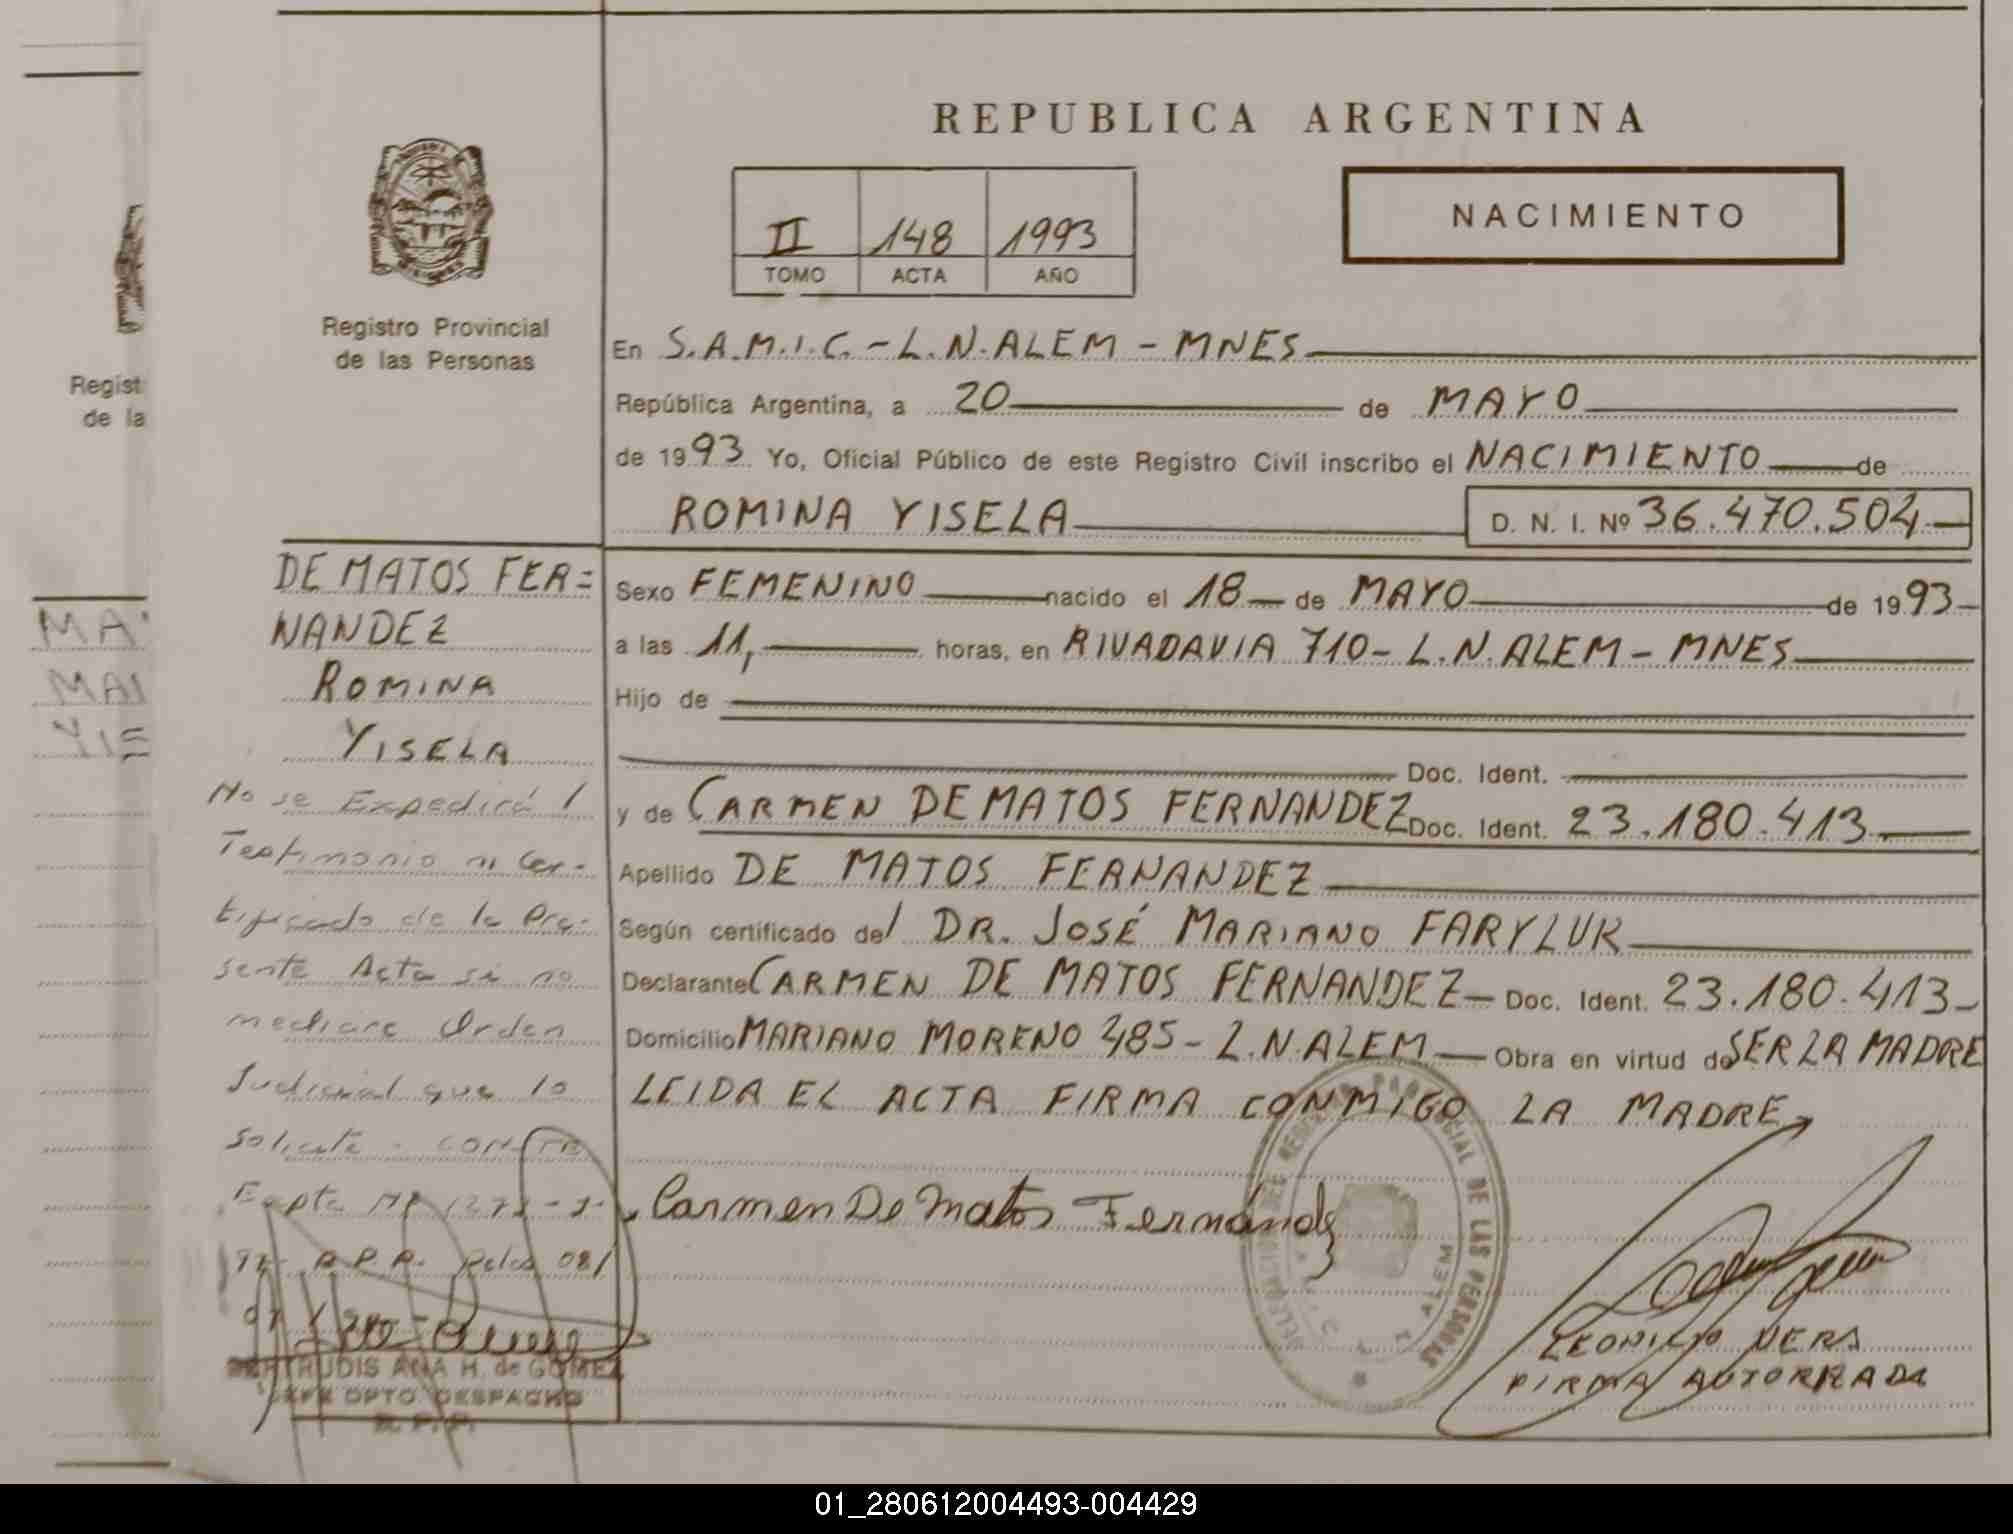 REPUBLICA ARGENTINA
II 148 1993
TOMO ACTA AÑO
NACIMIENTO
Registro Provincial
de las Personas
Regist
de la
En S.A.M.I.C. - L.N. ALEM - MNES
República Argentina, a 20 de MAYO
de 1993 Yo, Oficial Público de este Registro Civil inscribo el NACIMIENTO de
ROMINA YISELA D. N. I. Nº 36.470.504
DE MATOS FER=
NANDEZ
ROMINA
YISELA
MA
MA
YIS
Sexo FEMENINO nacido el 18 de MAYO de 1993
a las 11, horas, en RIVADAVIA 710 - L.N. ALEM - MNES
Hijo de
Doc. Ident.
y de CARMEN DE MATOS FERNANDEZ Doc. Ident. 23.180.413
Apellido DE MATOS FERNANDEZ
Según certificado del DR. JOSÉ MARIANO FARYLUK
Declarante CARMEN DE MATOS FERNANDEZ - Doc. Ident. 23.180.413 -
Domicilio MARIANO MORENO 485 - L.N. ALEM - Obra en virtud de SER LA MADRE
LEIDA EL ACTA FIRMA CONMIGO LA MADRE
No se Expedirá
Testimonio ni Cer-
tificado de la Pre-
sente Acta si no
mediare Orden
Judicial que lo
solicite
Expte
R.P.P.
GERTRUDIS ANA H. de GOMEZ
JEFE DPTO. DESPACHO
R. P. P.
Carmen De Matos Fernández
DELEGACION DEL REGISTRO PROVINCIAL DE LAS PERSONAS
ALEM
FIRMA AUTORIZADA
01_280612004493-004429